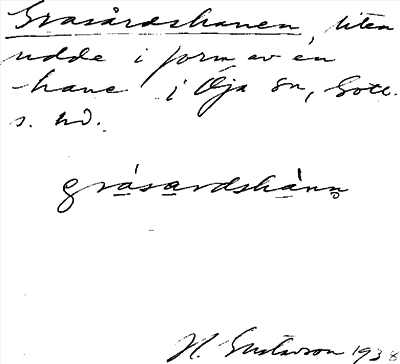 Grasårdshanen, liten
udde i form av en
hane i Öja sn, Gotl.
s. hd.
gräsardshànn
H. Gustavson 1938